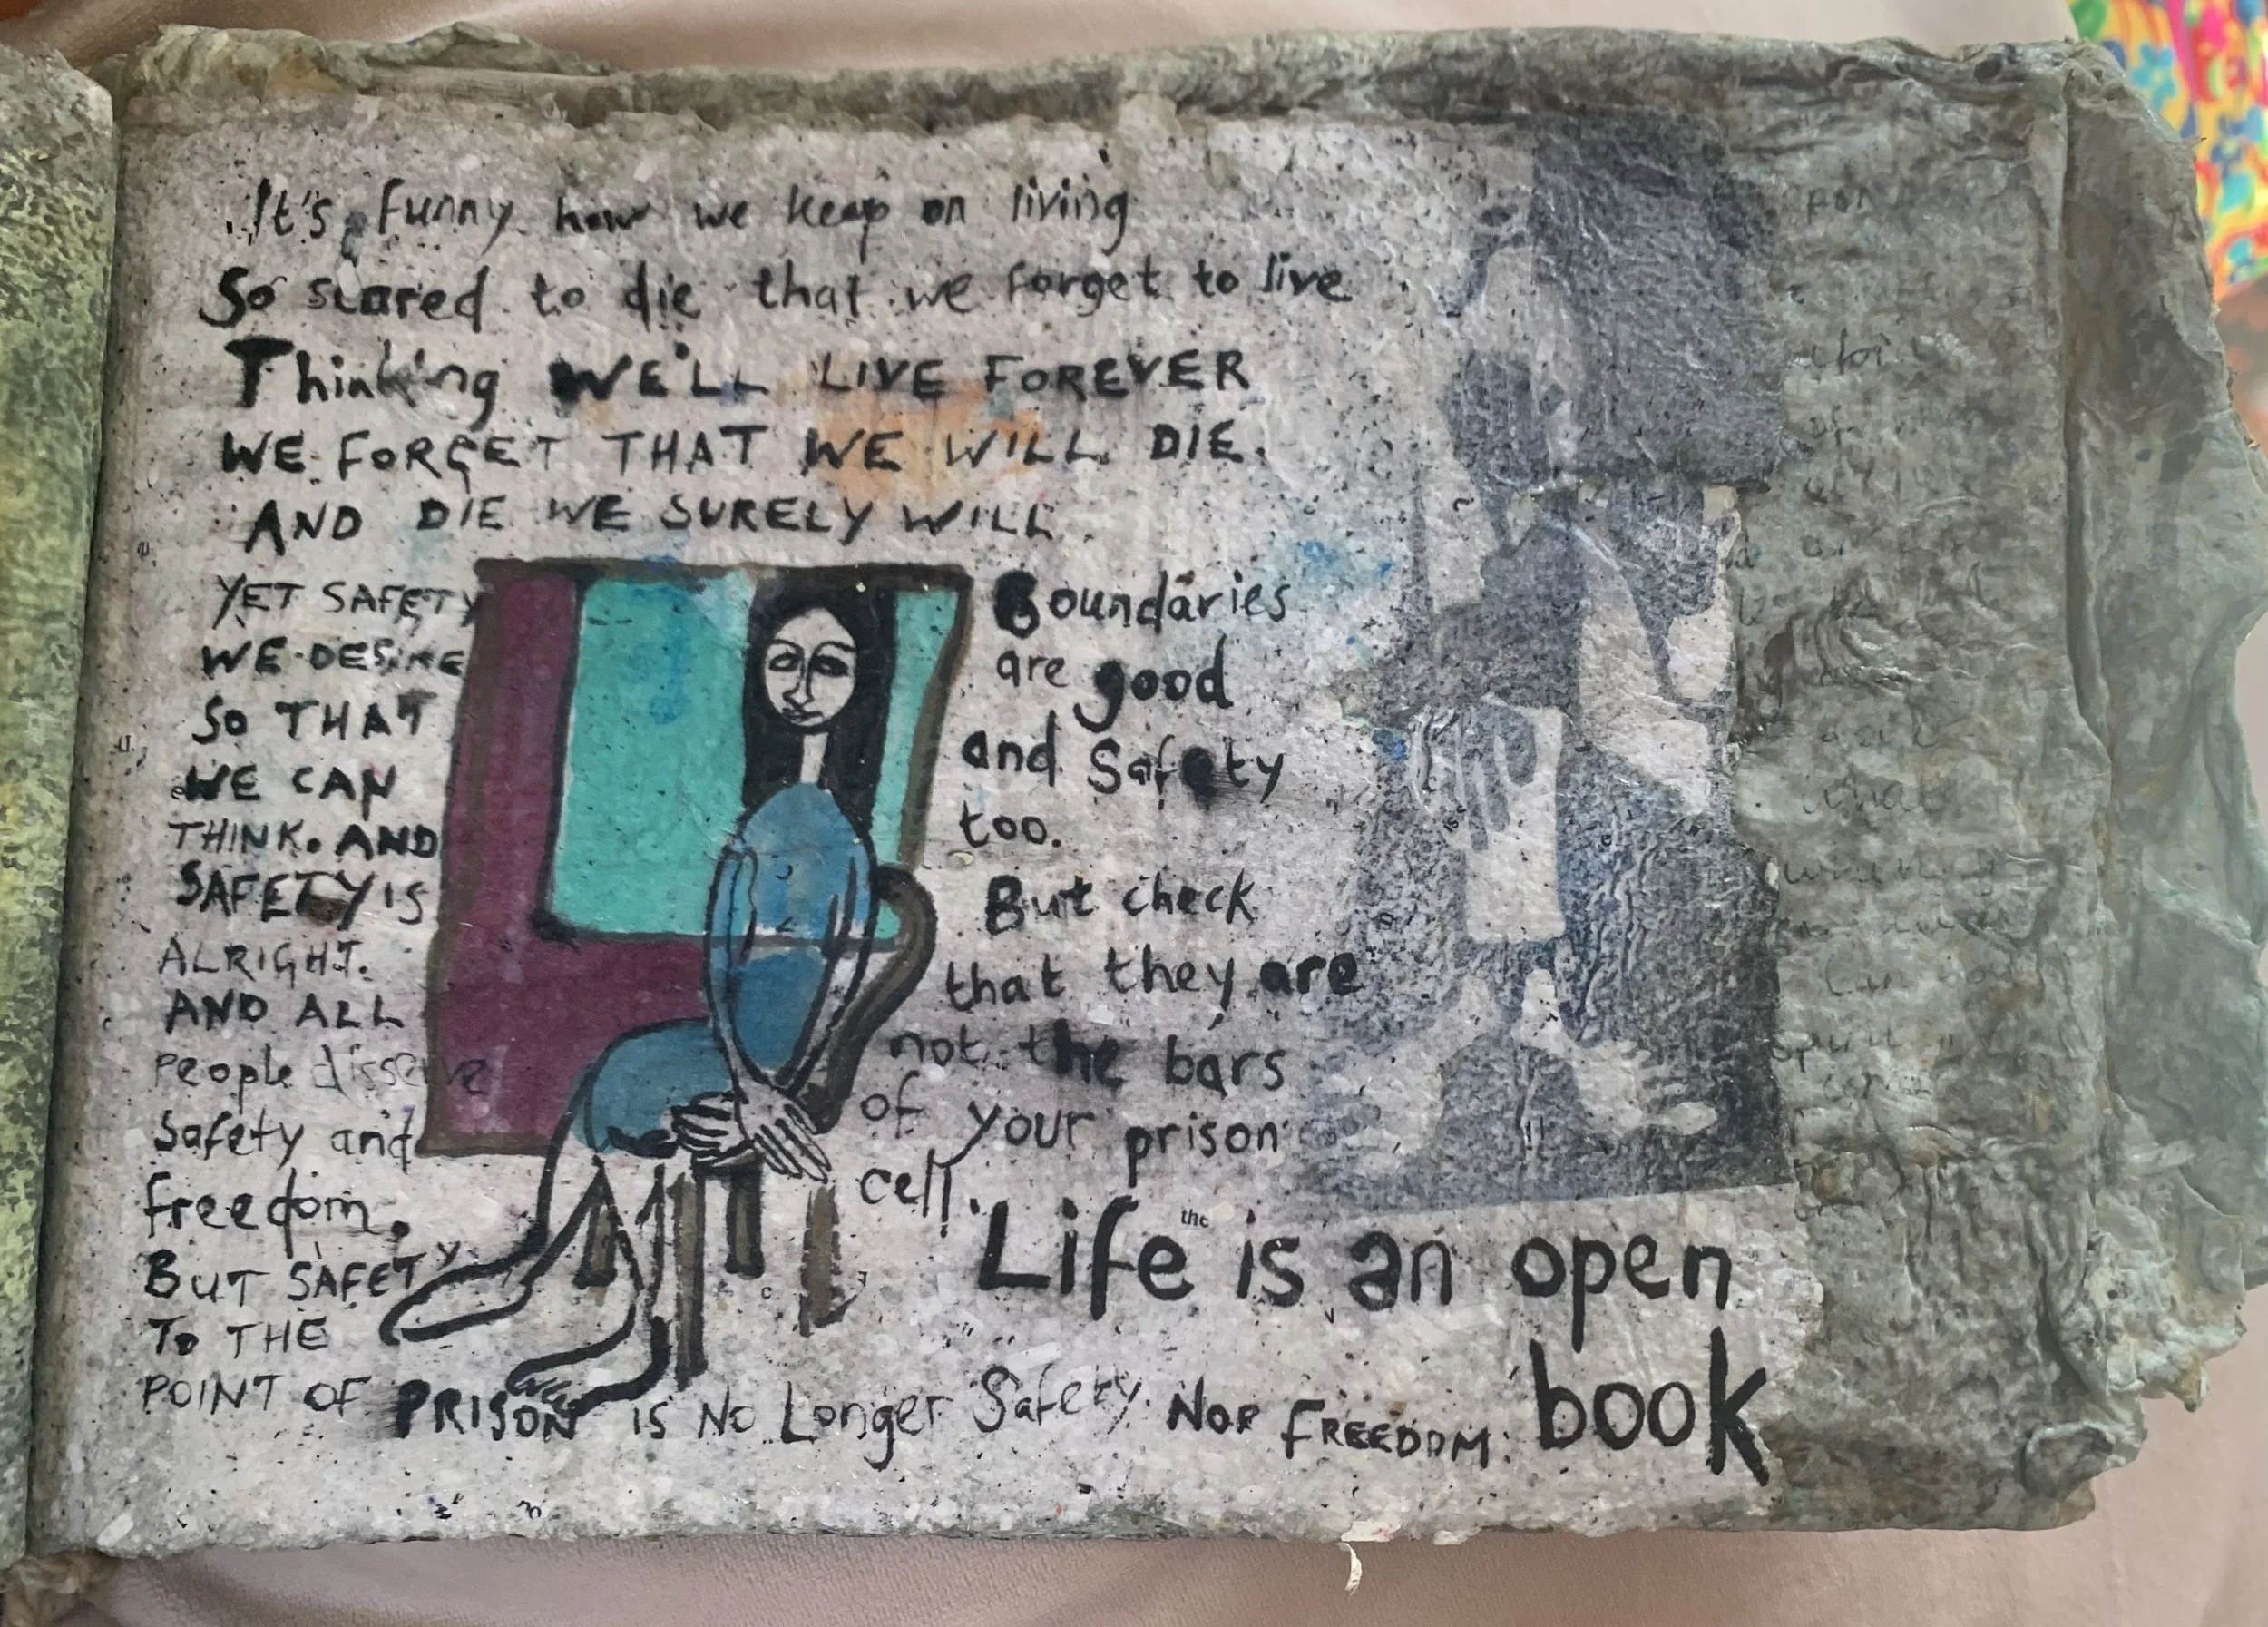 It's funny how we keep on living
So scared to die that we forget to live
Thinking WE'LL LIVE FOREVER
WE FORGET THAT WE WILL DIE.
AND DIE WE SURELY WILL.
YET SAFETY
WE DESIRE
SO THAT
WE CAN
THINK. AND
SAFETY IS
ALRIGHT.
AND ALL
People disserve
Safety and
freedom.
BUT SAFETY
TO THE
POINT OF PRISON IS No Longer Safety NOR FREEDOM.
Boundaries
are good
and Safety
too.
But check
that they are
not the bars
of your prison
cell.
the
Life is an open
book
is a
what